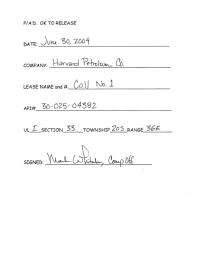 P/A'D. OK TO RELEASE
DATE: June 30, 2009
COMPANY: Harvard Petroleum Co.
LEASE NAME and #. Coll No. 1
API# 30-025-04382
UL I SECTION 33 TOWNSHIP 20S RANGE 36E
SIGNED: Comp Off